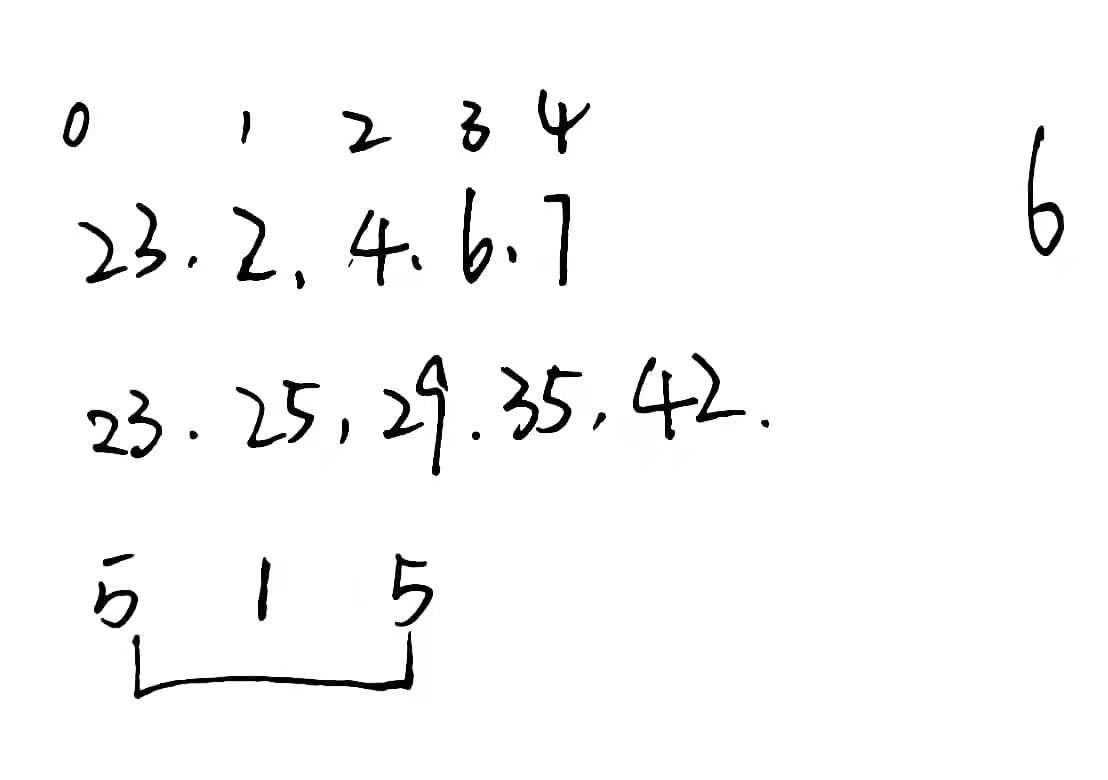 0 1 2 3 4
23. 2, 4. 6. 7
6
23. 25, 29. 35, 42.
5 1 5